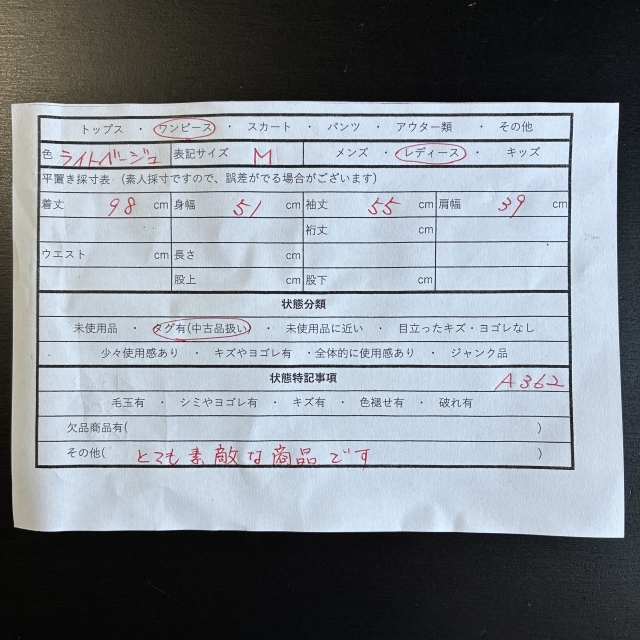 トップス ・ ワンピース ・ スカート ・ パンツ ・ アウター類 ・ その他
色 ライトベージュ 表記サイズ M メンズ ・ レディース ・ キッズ
平置き採寸表 (素人採寸ですので、誤差がでる場合がございます)
着丈 98 cm 身幅 51 cm 袖丈 55 cm 肩幅 39 cm
裄丈 cm
ウエスト cm 長さ cm
股上 cm 股下 cm
状態分類
未使用品 ・ タグ有(中古品扱い) ・ 未使用品に近い ・ 目立ったキズ・ヨゴレなし
少々使用感あり ・ キズやヨゴレ有 ・全体的に使用感あり ・ ジャンク品
状態特記事項 A362
毛玉有 ・ シミやヨゴレ有 ・ キズ有 ・ 色褪せ有 ・ 破れ有
欠品商品有( )
その他( とても素敵な商品です )